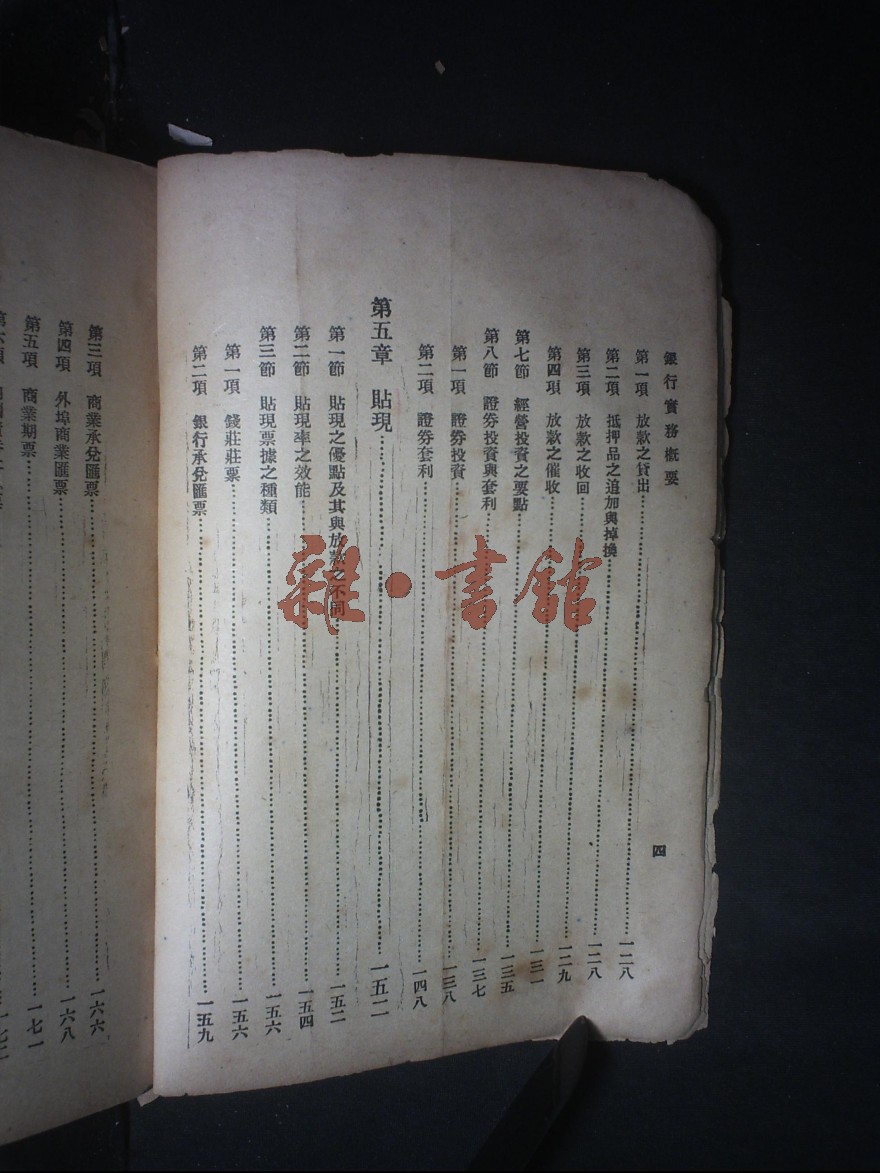 銀行實務概要
四
第一項 放款之貸出…………一二八
第二項 抵押品之追加與掉換…………一二八
第三項 放款之收回…………一二九
第四項 放款之催收…………一三一
第七節 經營投資之要點…………一三五
第八節 證券投資與套利…………一三七
第一項 證券投資…………一三八
第二項 證券套利…………一四八
第五章 貼現…………一五二
第一節 貼現之優點及其與放款之不同…………一五二
第二節 貼現率之效能…………一五四
第三節 貼現票據之種類…………一五六
第一項 錢莊莊票…………一五六
第二項 銀行承兌匯票…………一五九
第三項 商業承兌匯票…………一六六
第四項 外埠商業匯票…………一六八
第五項 商業期票…………一七一
雜·書館